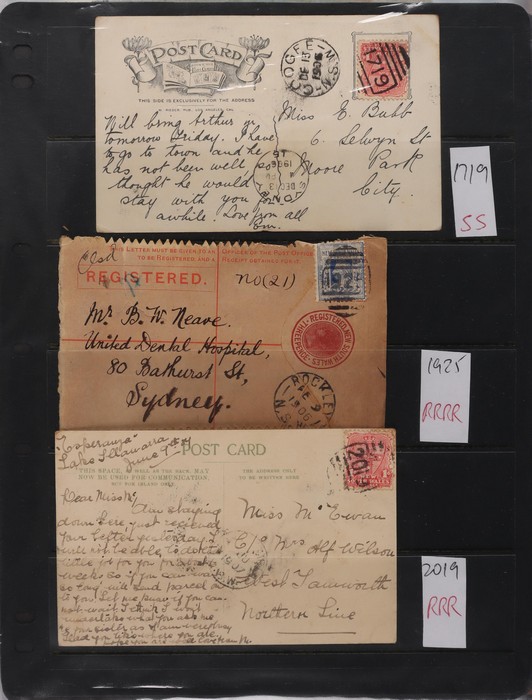 POST CARD
THIS SIDE IS EXCLUSIVELY FOR THE ADDRESS
COOGEE
DE 13
1906
N.S.W
1719
Will bring Arthur in
tomorrow Friday. I have
to go to town and he
has not been well,
thought he would
stay with you for
awhile. Love from all
Em.
Miss E. Bubb
6. Selwyn St
Moore Park
City.
1719
SS
THIS LETTER MUST BE GIVEN TO AN
OFFICER OF THE POST OFFICE
TO BE REGISTERED, AND A
RECEIPT OBTAINED FOR IT.
REGISTERED.
No (21)
Mr B. W. Neave.
United Dental Hospital,
80 Bathurst St,
Sydney.
REGISTERED NEW SOUTH WALES
THREEPENCE
ROCKLEY
1906
N.S.W
1925
RRRR
"Esperanza"
Lake Illawarra
June 7th
POST CARD
THIS SPACE, AS WELL AS THE BACK, MAY
NOW BE USED FOR COMMUNICATION.
THE ADDRESS ONLY
TO BE WRITTEN HERE
Dear Miss Mc,
Am staying
down here, just received
your letter yesterday. I
will not be able to do the
little job for you for about
weeks so if you can wait
so long will send parcel on
to you. Let me know if you can
not wait
Miss McEwan
C/o Mrs Alf Wilson
West Tamworth
Northern Line
2019
2019
RRR